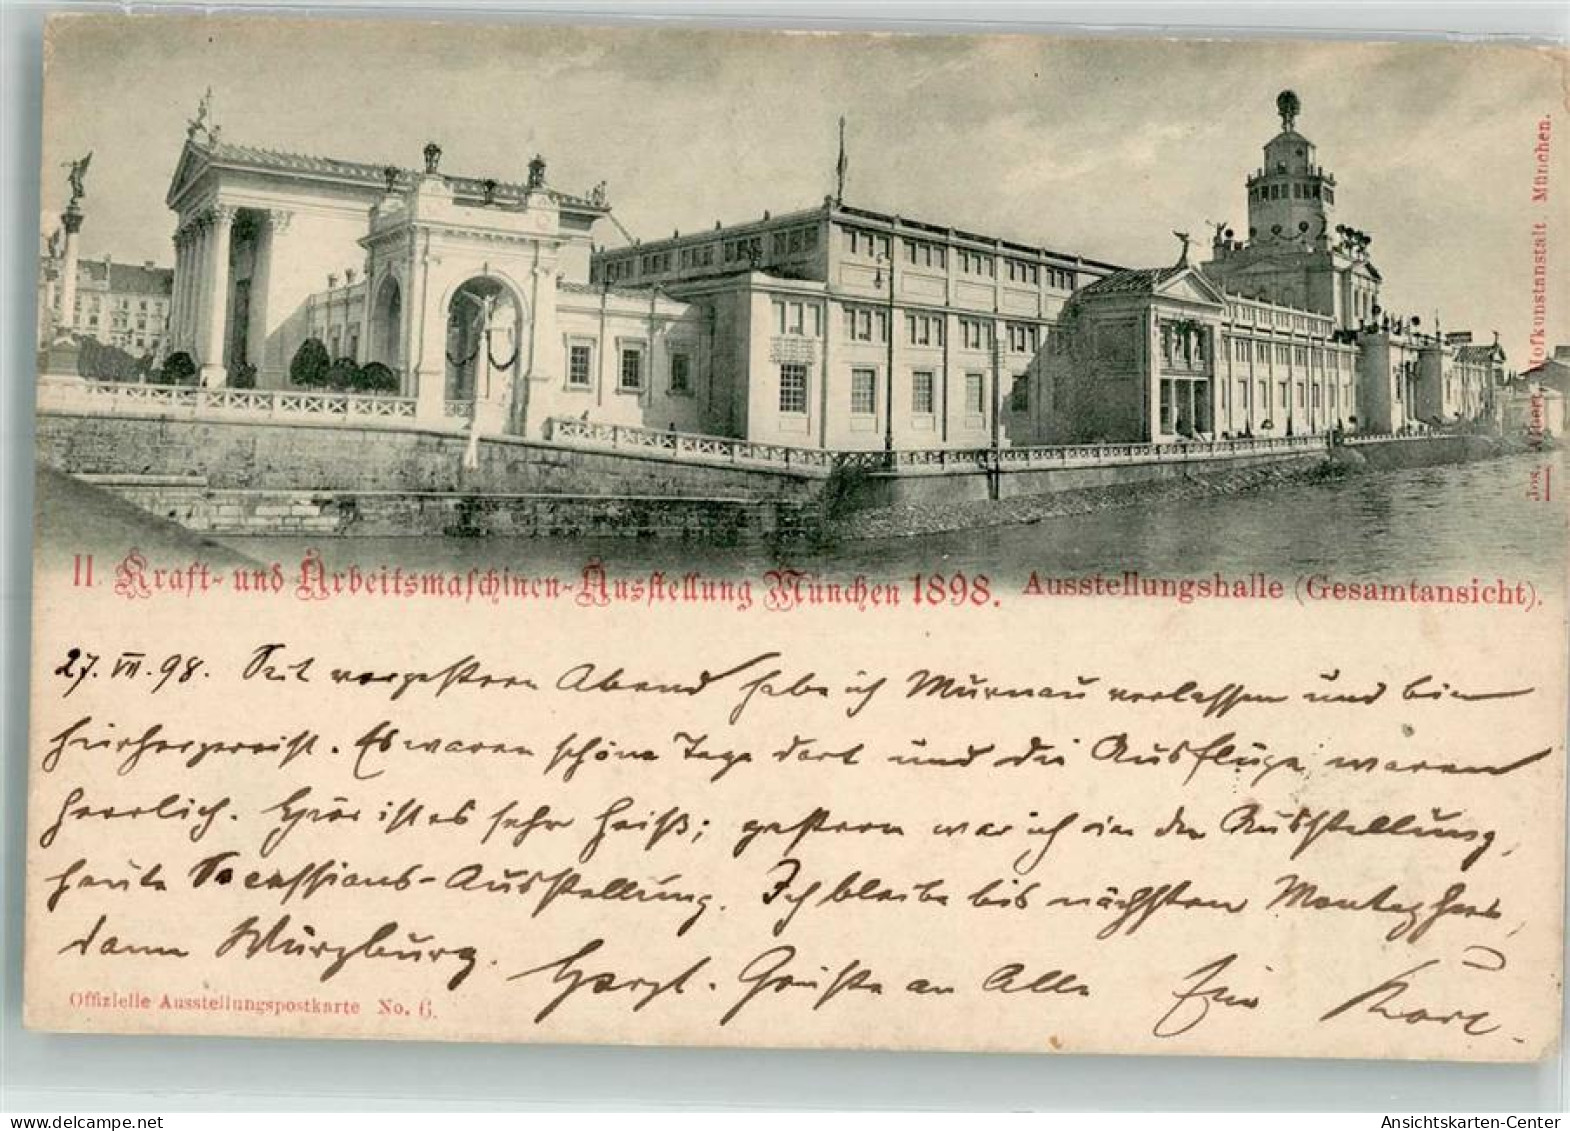 Jos. Albert, Hofkunstanstalt. München.
II. Kraft- und Arbeitsmaschinen-Ausstellung München 1898. Ausstellungshalle (Gesamtansicht).
27. VII. 98. Seit vorgestern Abend habe ich Murnau verlassen und bin
hierhergereist. Es waren schöne Tage dort und die Ausflüge waren
herrlich. Hier ist es sehr heiß; gestern war ich in der Ausstellung,
heute Secessions-Ausstellung. Ich bleibe bis nächsten Montag hier,
dann Würzburg. Herzl. Grüße an Alle Euer Karl.
Offizielle Ausstellungspostkarte No. 6.
www.delcampe.net
Ansichtskarten-Center